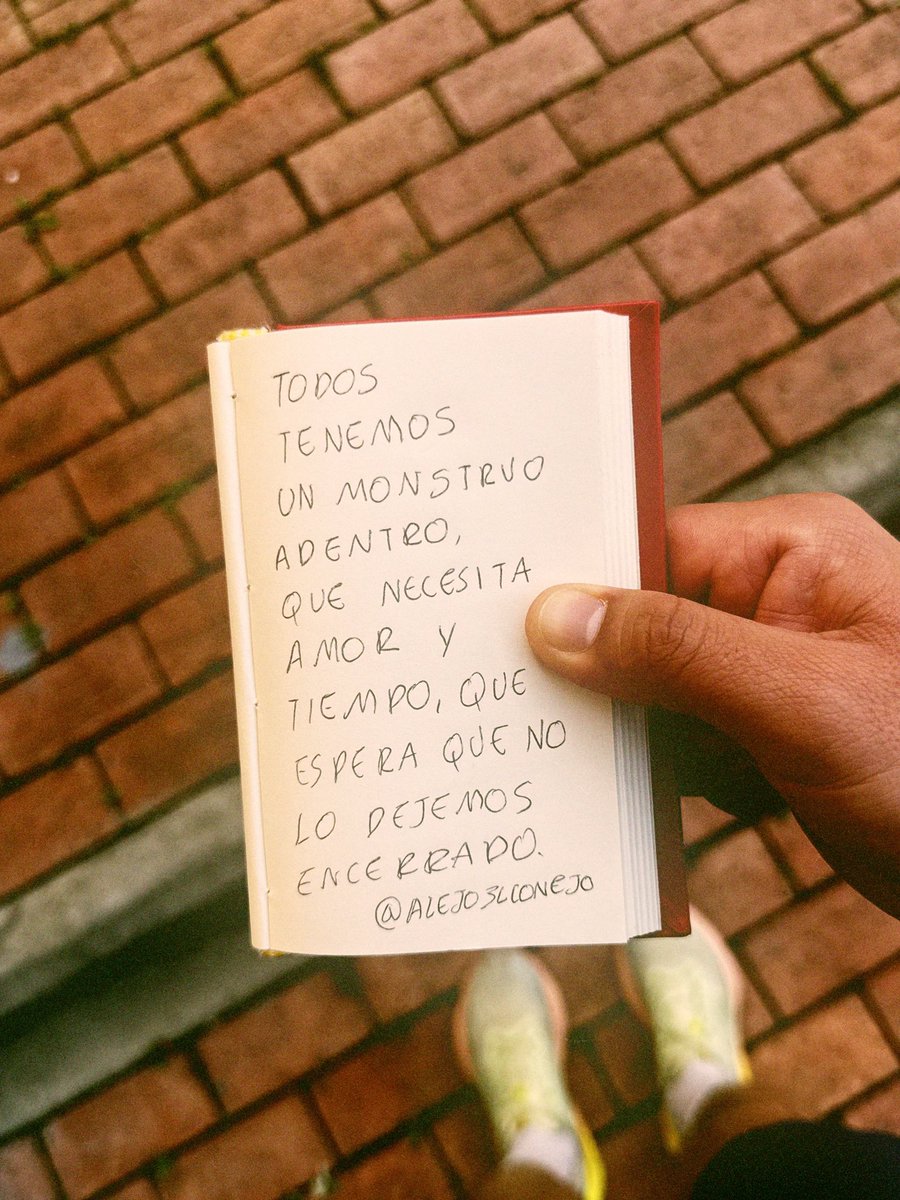 TODOS
TENEMOS
UN MONSTRUO
ADENTRO,
QUE NECESITA
AMOR Y
TIEMPO, QUE
ESPERA QUE NO
LO DEJEMOS
ENCERRADO.
@ALEJO3LCONEJO